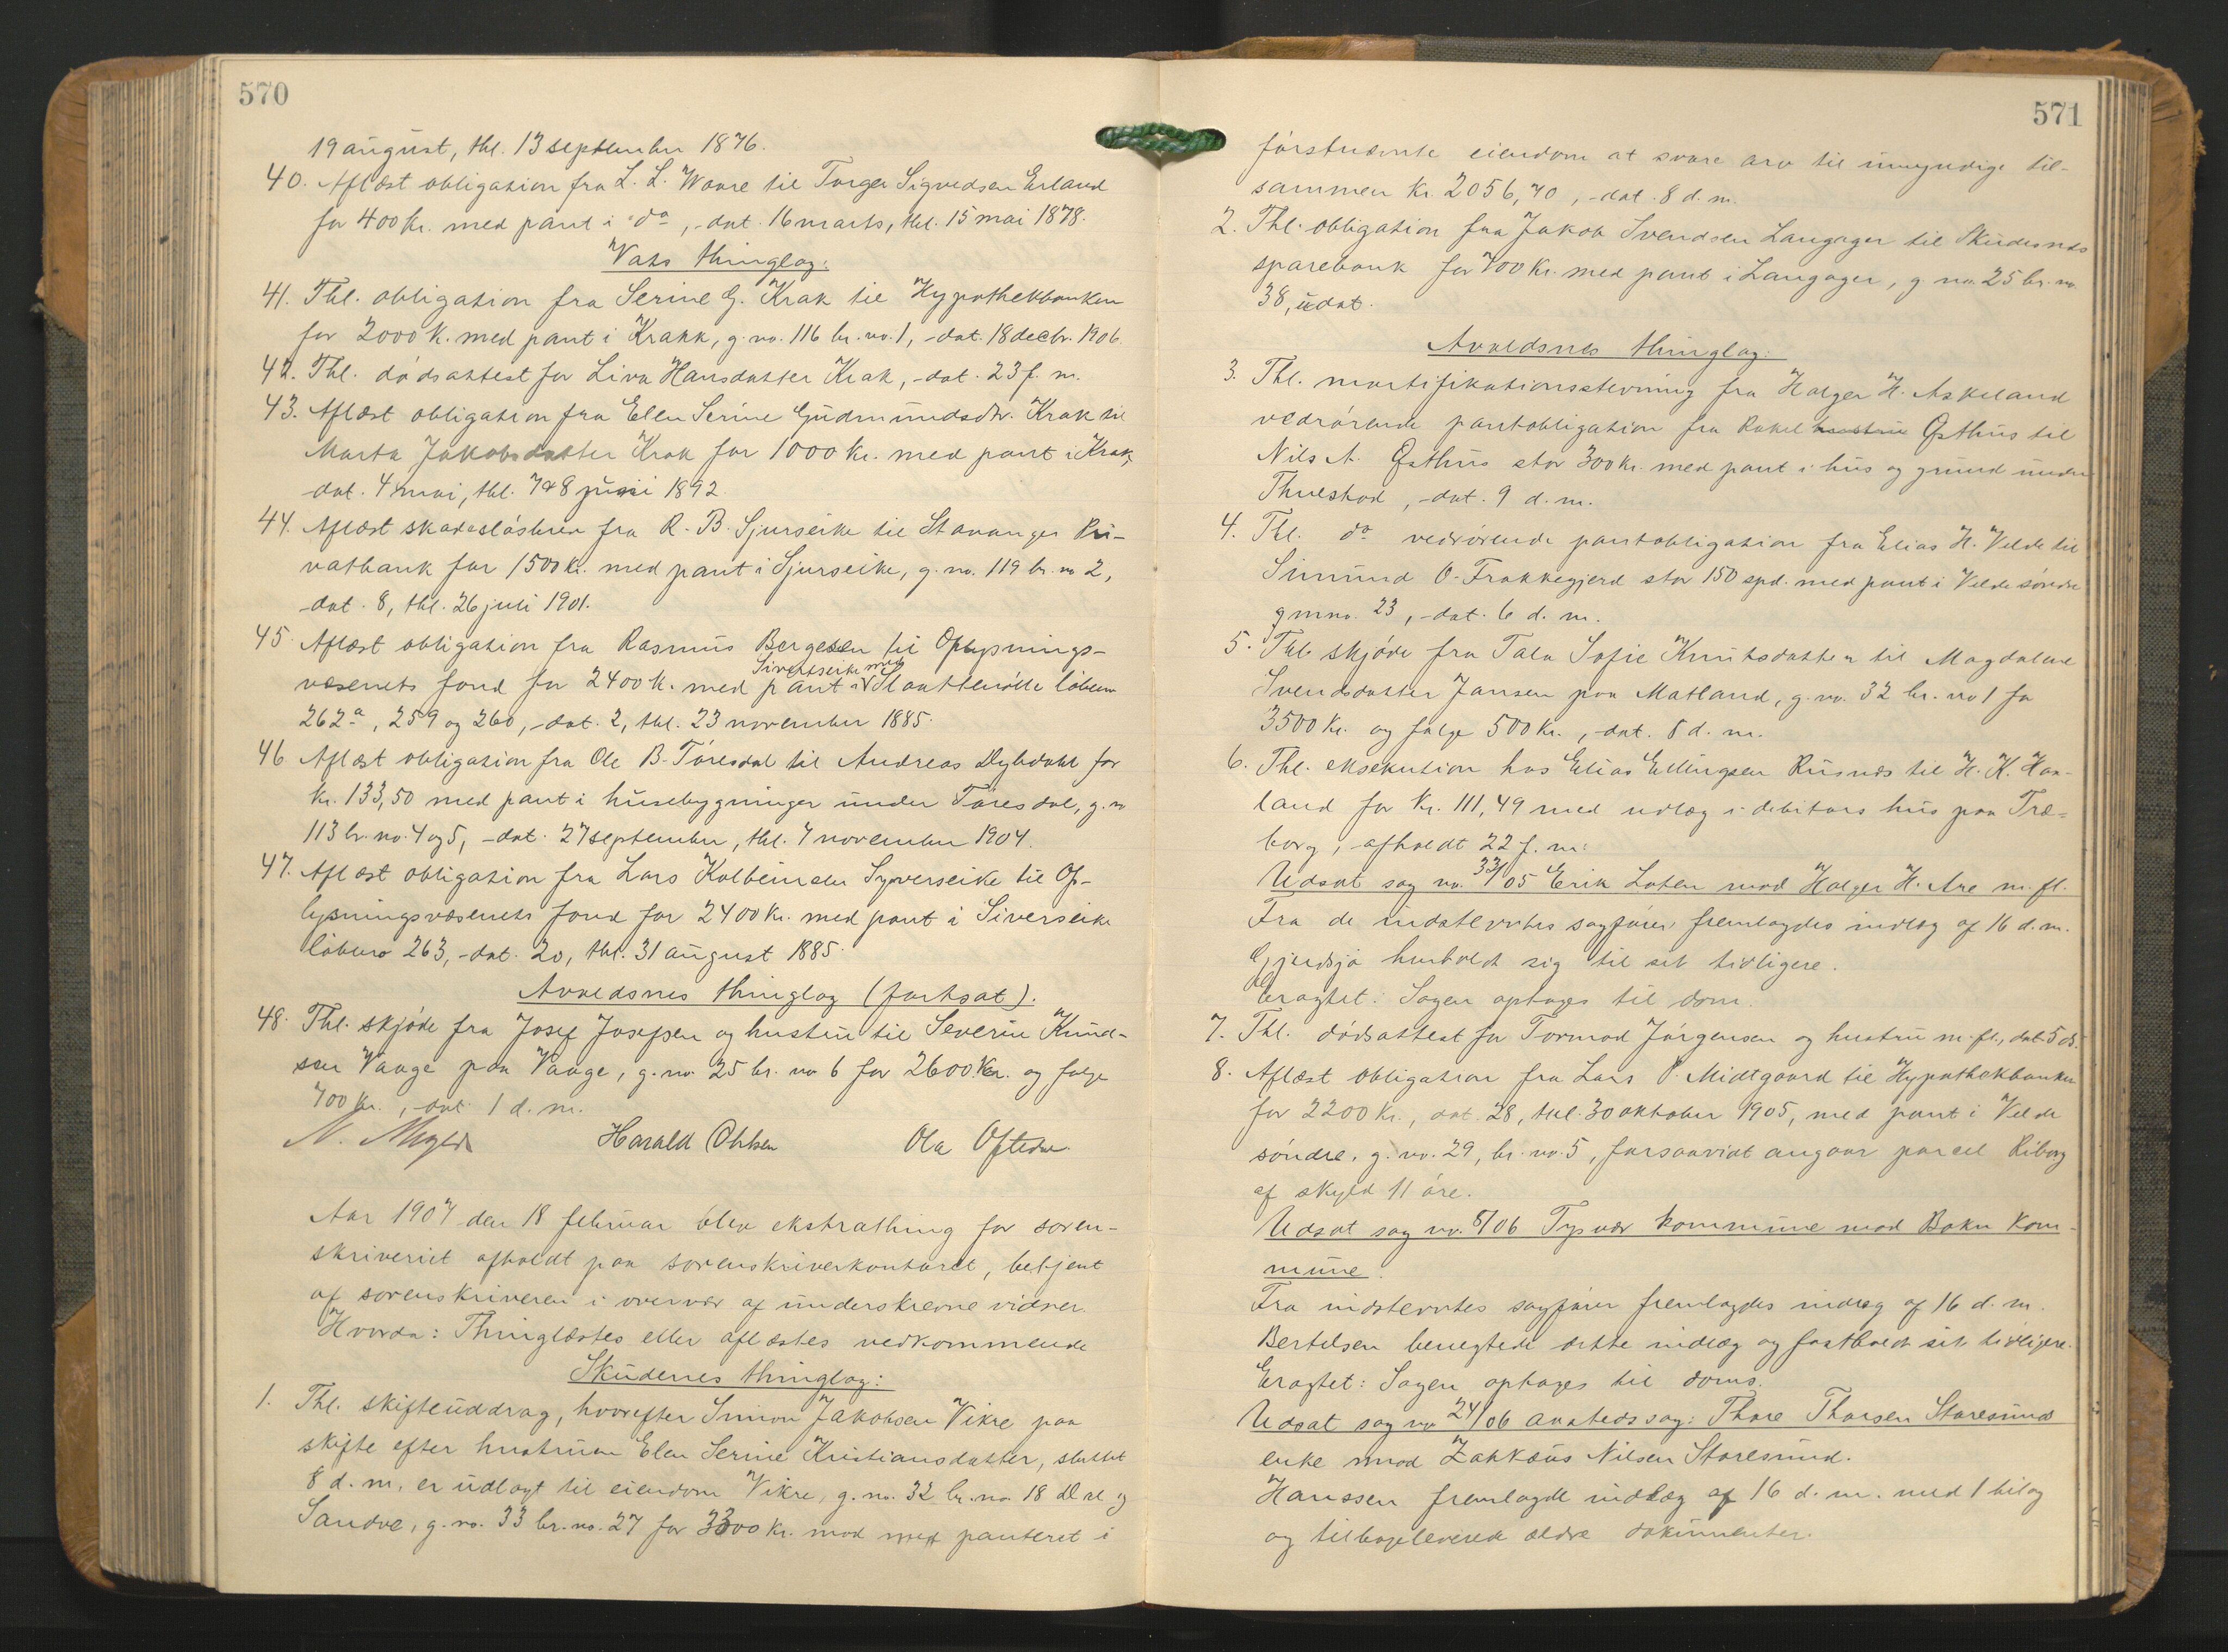 570
19 august, thl. 13 september 1876.
40. Aflæst obligation fra L. L. Waare til Torger Sigvedsen Erland
for 400 kr. med pant i do, -dat. 16 marts, thl. 15 mai 1878.
Vats thinglag:
41. Thl. obligation fra Serine G. Krak til Hypothekbanken
for 2000 k. med pant i Krakk, g. no. 116 br. no. 1, -dat. 18 decbr. 1906.
42. Thl. dødsattest for Liva Hansdatter Krak, -dat. 23 f. m.
43. Aflæst obligation fra Ellen Serine Gudmundsdtr. Krak til
Marta Jakobsdatter Krak for 1000 kr. med pant i Krak,
dat. 4 mai, thl. 7 & 8 juni 1892.
44. Aflæst skadesløsbrev fra R. B. Sjurseike til Stavanger Pri-
vatbank for 1500 kr. med pant i Sjurseike, g. no. 119 br. no 2,
-dat. 8, thl. 26 juli 1901.
45. Aflæst obligation fra Rasmus Bergesen til Oplysnings-
Sivertseike med
væsenets fond for 2400 k. med pant i Slaattenølle løbeno
262a, 259 og 260, -dat. 2, thl. 23 november 1885.
46 Aflæst obligation fra Ole B. Tøresdal til Andreas Dybdahl for
kr. 133,50 med pant i husebygninger under Tøresdal, g. no
113 br. no. 4 og 5, -dat. 27 september, thl. 7 november 1904.
47. Aflæst obligation fra Lars Kolbeinsen Syverseike til Op-
lysningsvæsenets fond for 2400 kr. med pant i Siverseike
løbeno 263, -dat. 20, thl. 31 august 1885.
Avaldsnes thinglag (fortsat).
48. Thl. skjøde fra Josef Josefsen og hustru til Severin Knud-
sen Vaage paa Vaage, g. no. 25 br. no 6 for 2600 kr. og følge
700 kr., -dat. 1 d. m.
Harald Ohlsen Ola Oftedal
Aar 1907 den 18 februar blev ekstrathing for soren-
skriveriet afholdt paa sorenskriverkontoret, betjent
af sorenskriveren i overvær af underskrevne vidner.
Hvorda: Thinglæstes eller aflæstes vedkommende
Skudenes thinglag:
1. Thl. skifteuddrag, hvorefter Simon Jakobsen Vikre paa
skifte efter hustruen Elen Serine Kristiansdatter, sluttet
8 d. m. er udlagt til eiendom Vikre, g. no. 32 br. no. 18 Dal og
Sandve, g. no. 33 br. no. 27 for 3300 kr. mod med panteret i
571
førstnævnte eiendom at svare arv til umyndige til-
sammen kr. 2056,70, -dat. 8 d. m.
2. Thl. obligation fra Jakob Svendsen Langager til Skudesnes
sparebank for 700 kr. med pant i Langager, g. no. 25 br. no.
38, udat.
Avaldsnes thinglag:
3. Thl. mortifikationsstevning fra Holger H. Askeland
vedrørende pantobligation fra Rakel hustru Østhus til
Nils A. Østhus stor 300 kr. med pant i hus og grund under
Thuestad, -dat. 9 d. m.
4. Thl. do vedrørende pantobligation fra Elias H. Velde til
Simund O. Frakkegjerd stor 150 spd. med pant i Velde søndre
gmno. 23, -dat. 6 d. m.
5. Thl. skjøde fra Tala Sofie Knutsdatter til Magdalene
Svendsdatter Jansen paa Matland, g. no. 32 br. no 1 for
3500 kr. og følge 500 kr., -dat. 8 d. m.
6. Thl. eksekution hos Elias Ellingsen Risnæs til H. K. Haa-
land for kr. 111,49 med udlæg i debitors hus paa Træ-
borg, afholdt 22 f. m.
Udsat sag no. 33/05 Erik Loten mod Holger H. Are m. fl.
Fra de indstevntes sagfører fremlagdes indlæg af 16 d. m.
Gjerdsjø henholdt sig til sit tidligere.
Eragtet: Sagen optages til dom.
7. Thl. dødsattest for Tormod Jørgensen og hustru m. fl., dat. 5 ds.
8. Aflæst obligation fra Lars P. Midtgaard til Hypothekbanken
for 2200 kr., dat. 28, thl. 30 oktober 1905, med pant i Velde
søndre, g. no. 29, br. no. 5, forsaavidt angaar parcel Riborg
af skyld 11 øre.
Udsat sag no. 8/06 Tysvær kommune mod Bokn kom-
mune.
Fra indstevntes sagfører fremlagdes indlæg af 16 d. m.
Bertelsen benegtede dette indlæg og fastholdt sit tidligere.
Eragtet: Sagen optages til doms.
Udsat sag no 24/06 aastedssag: Thore Thorsen Storesunds
enke mod Zakkæus Nilsen Storesund.
Hanssen fremlagde indlæg af 16 d. m. med 1 bilag
og tilbageleverede ældre dokumenter.